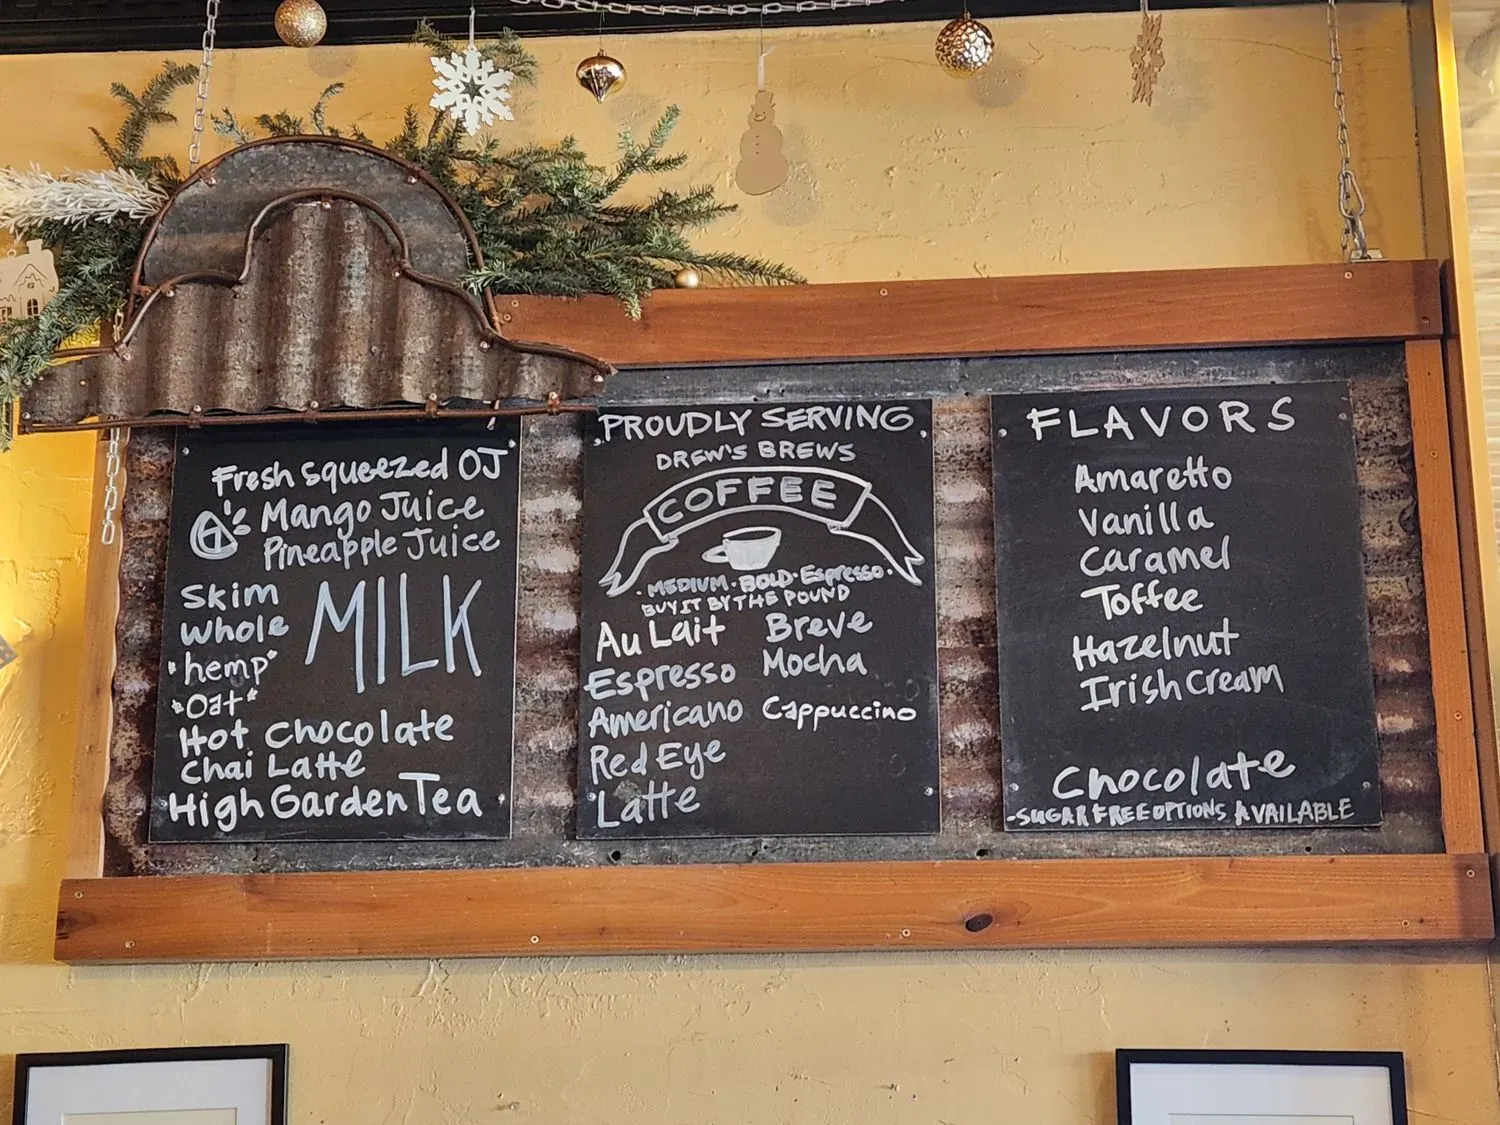 Fresh squeezed OJ
Mango Juice
Pineapple Juice
Skim
Whole
"hemp"
"Oat"
MILK
Hot Chocolate
Chai Latte
High Garden Tea
PROUDLY SERVING
DREW'S BREWS
COFFEE
·MEDIUM·BOLD·Espresso·
BUY IT BY THE POUND
Au Lait
Espresso
Americano
Red Eye
Latte
Breve
Mocha
Cappuccino
FLAVORS
Amaretto
Vanilla
Caramel
Toffee
Hazelnut
Irish Cream
Chocolate
-SUGAR FREE OPTIONS AVAILABLE